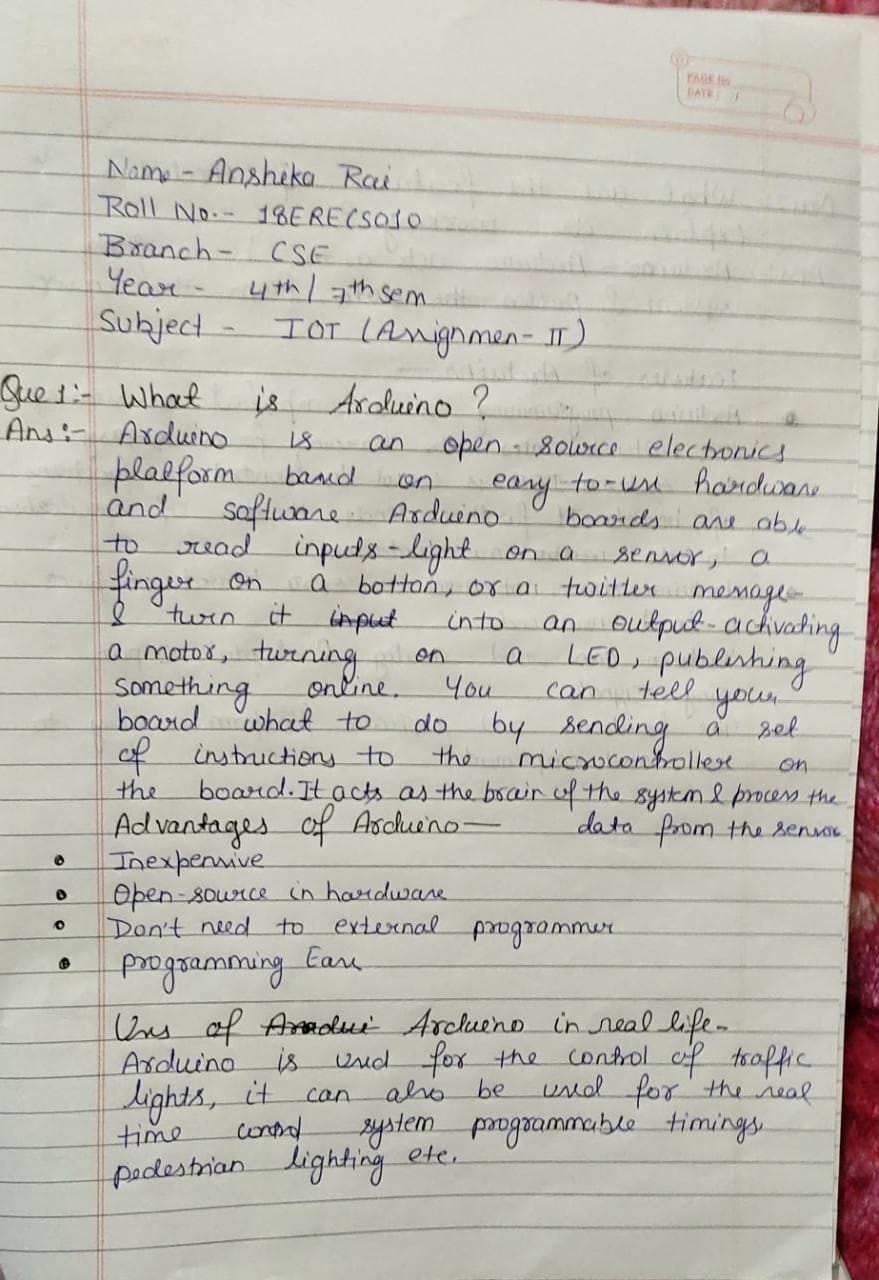 PAGE No.
DATE: /
Name - Anshika Rai
Roll No.- 18ERECS010
Branch - CSE
Year - 4th / 7th sem
Subject - IOT (Assignmen- II)
Que 1:- What is Arduino ?
Ans:- Arduino is an open-source electronics
platform based on easy to-use hardware
and software. Arduino boards are able
to read inputs-light on a sensor, a
finger on a botton, or a twitter message
& turn it input into an output-activating
a motor, turning on a LED, publishing
something online. You can tell your
board what to do by sending a set
of instructions to the microcontroller on
the board. It acts as the brain of the system & process the
Advantages of Arduino— data from the sensor
• Inexpensive
• Open-source in hardware
• Don't need to external programmer
• programming Ease
Uses of Aradui Arduino in real life-
Arduino is used for the control of traffic
lights, it can also be used for the real
time control system programmable timings,
pedestrian lighting etc.